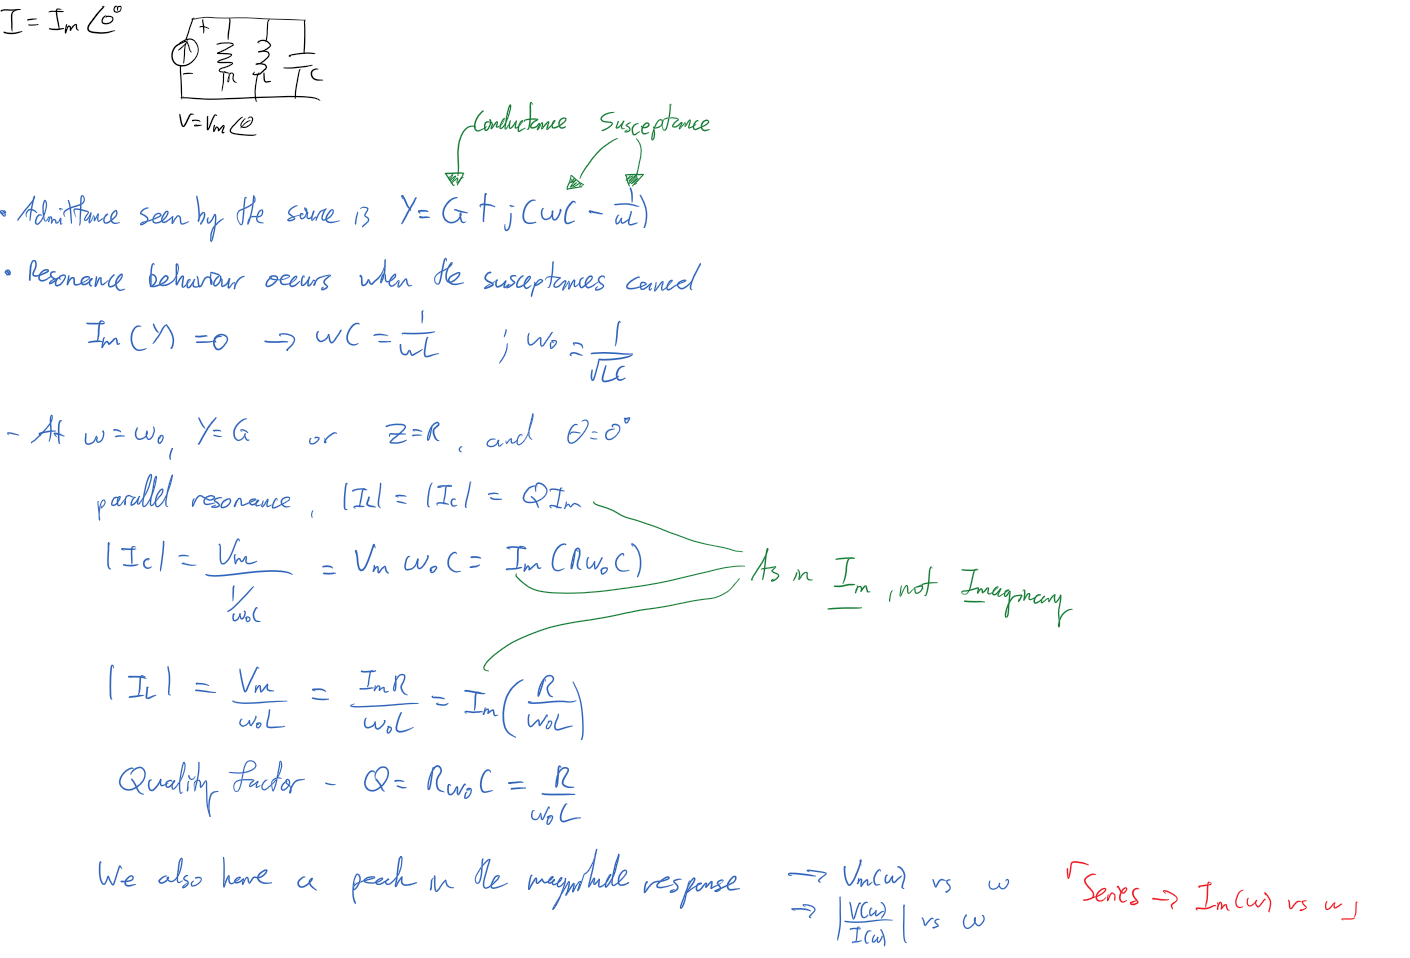 I = Im∠0°
+
R L C
-
V=Vm∠θ
Conductance Susceptance
• Admittance seen by the source is Y= G + j(ωC - 1/ωL)
• Resonance behaviour occurs when the susceptances cancel
Im(Y) =0 → ωC = 1/ωL ; ω₀ = 1/√LC
- At ω=ω₀, Y=G or Z=R, and θ=0°
parallel resonance, |IL| = |Ic| = QIm
|Ic| = Vm/(1/ω₀C) = Vm ω₀C = Im(Rω₀C)
As in Im, not Imaginary
|IL| = Vm/ω₀L = ImR/ω₀L = Im(R/ω₀L)
Quality factor - Q= Rω₀C = R/ω₀L
We also have a peak in the magnitude response → Vm(ω) vs ω
→ |V(ω)/I(ω)| vs ω
「Series → Im(ω) vs ω」